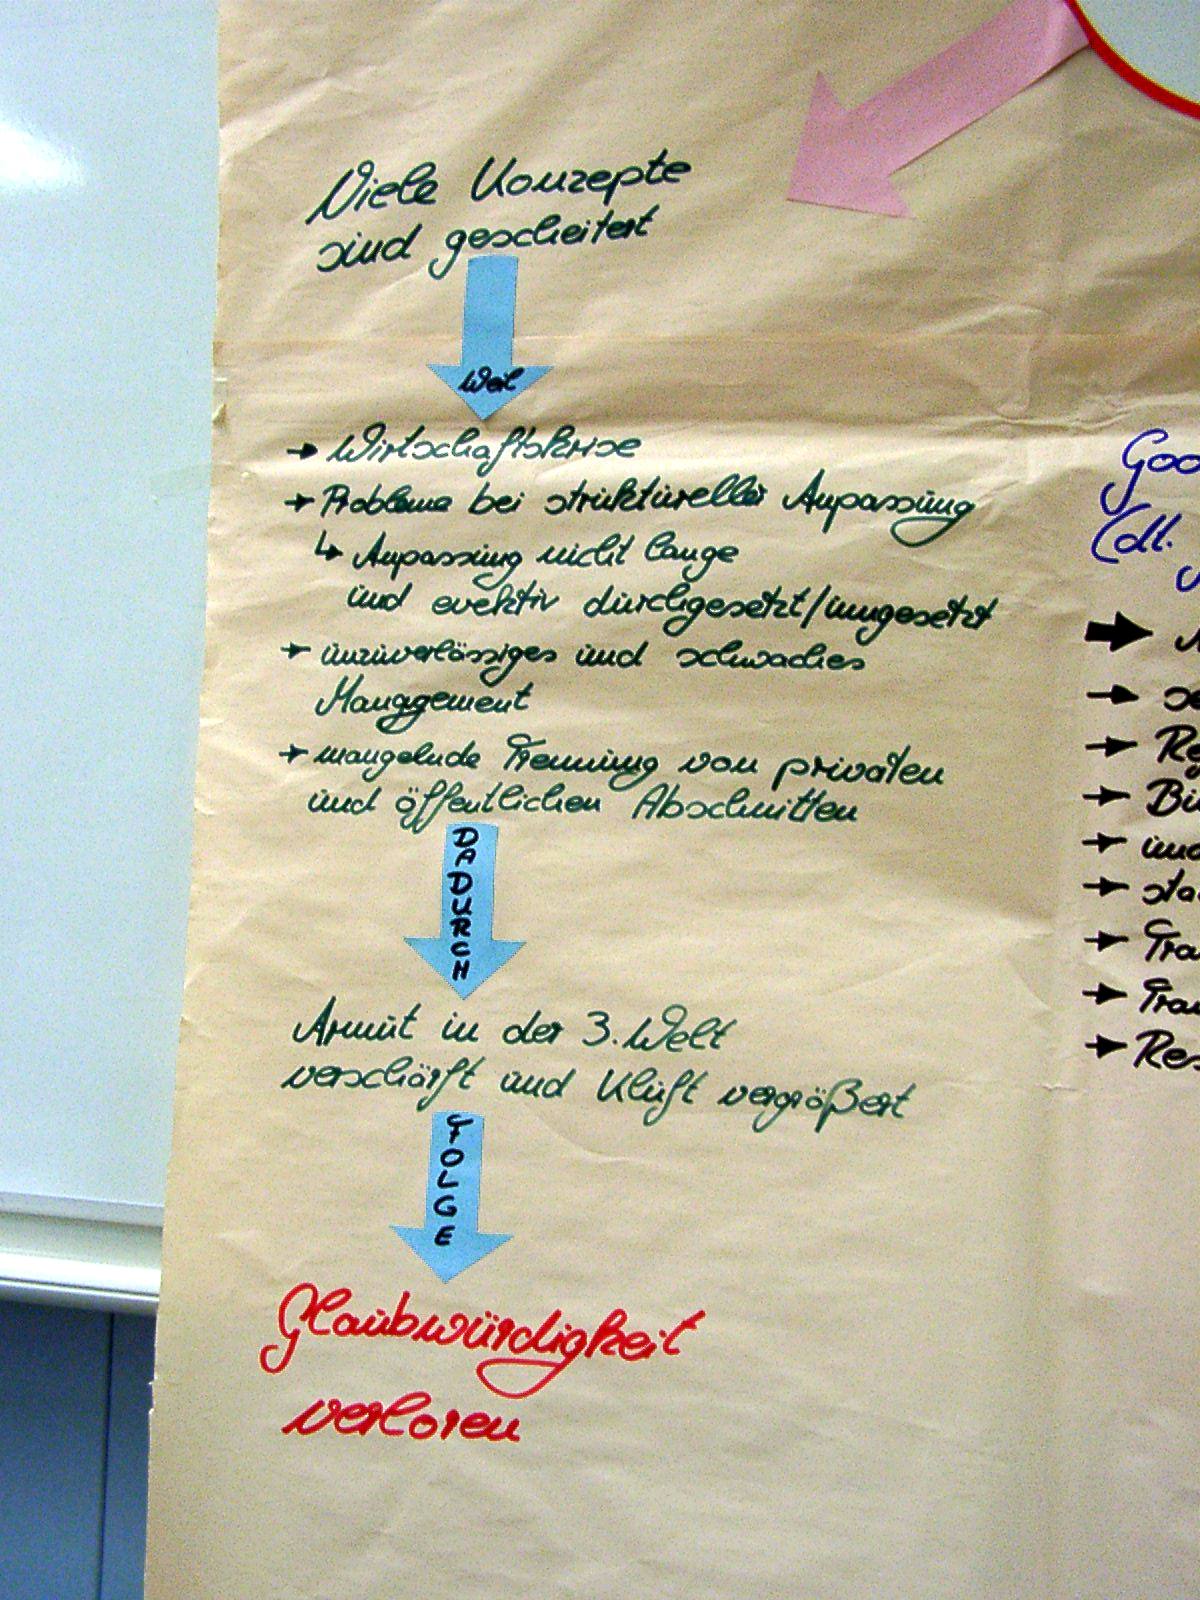 Viele Konzepte
sind gescheitert
weil
→ Wirtschaftskrise
→ Probleme bei struktureller Anpassung
↳ Anpassung nicht lange
und evektiv durchgesetzt/umgesetzt
→ unzuverlässiges und schwaches
Management
→ mangelnde Trennung von privaten
und öffentlichen Abschnitten
DADURCH
Armut in der 3. Welt
verschärft und Kluft vergrößert
FOLGE
Glaubwürdigkeit
verloren
Goo
(dl.
→
→ se
→ Re
→ Bi
→ und
→ sta
→ Tra
→ Tra
→ Res